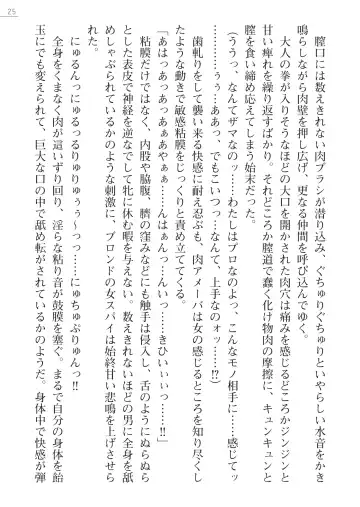 25
　膣口には数えきれない肉ブラシが潜り込み、ぐちゅりぐちゅりといやらしい水音をかき
鳴らしながら肉壁を押し広げ、更なる仲間を呼び込んでゆく。
　大人の拳が入りそうなほどの大口を開かされた肉穴は痛みを感じるどころかジンジンと
甘い痺れを繰り返すばかり。それどころか膣道で蠢く化け物肉の摩擦に、キュンキュンと
膣を食い締め応えてしまう始末だった。
（ううっ、なんてザマなのッ……わたしはプロなのよっ、こんなモノ相手に……感じてッ
……ぅぅ……ああっ、でもこいつ……なんて、上手なのォッ……!?）
　歯軋りをして襲い来る快感に耐え忍ぶも、肉アメーバは女の感じるところを知り尽くし
たような動きで敏感粘膜をじっくりと責め立ててくる。
「はぁっあっあっあぁぁあやぁぁ……んはぁんっ……んいっ……きひいぃぃっ……‼」
　粘膜だけではなく、内股や脇腹、臍の窪みなどにも触手は侵入し、舌のようにぬらぬら
とした表皮で神経を逆なでして牝に休む暇を与えない。数えきれないほどの男に全身を舐
めしゃぶられているかのような刺激に、ブロンドの女スパイは始終甘い悲鳴を上げさせら
れてしまう。
　にゅるんっにゅるっるりゅりゅぅぅ～っ……っにゅちゅぷりゅんっ‼
　全身をくまなく肉が這いずり回り、淫らな粘り音が鼓膜を塞ぐ。まるで自分の身体を飴
玉にでも変えられて、巨大な口の中で舐め転がされているかのようだ。身体中で快感が弾